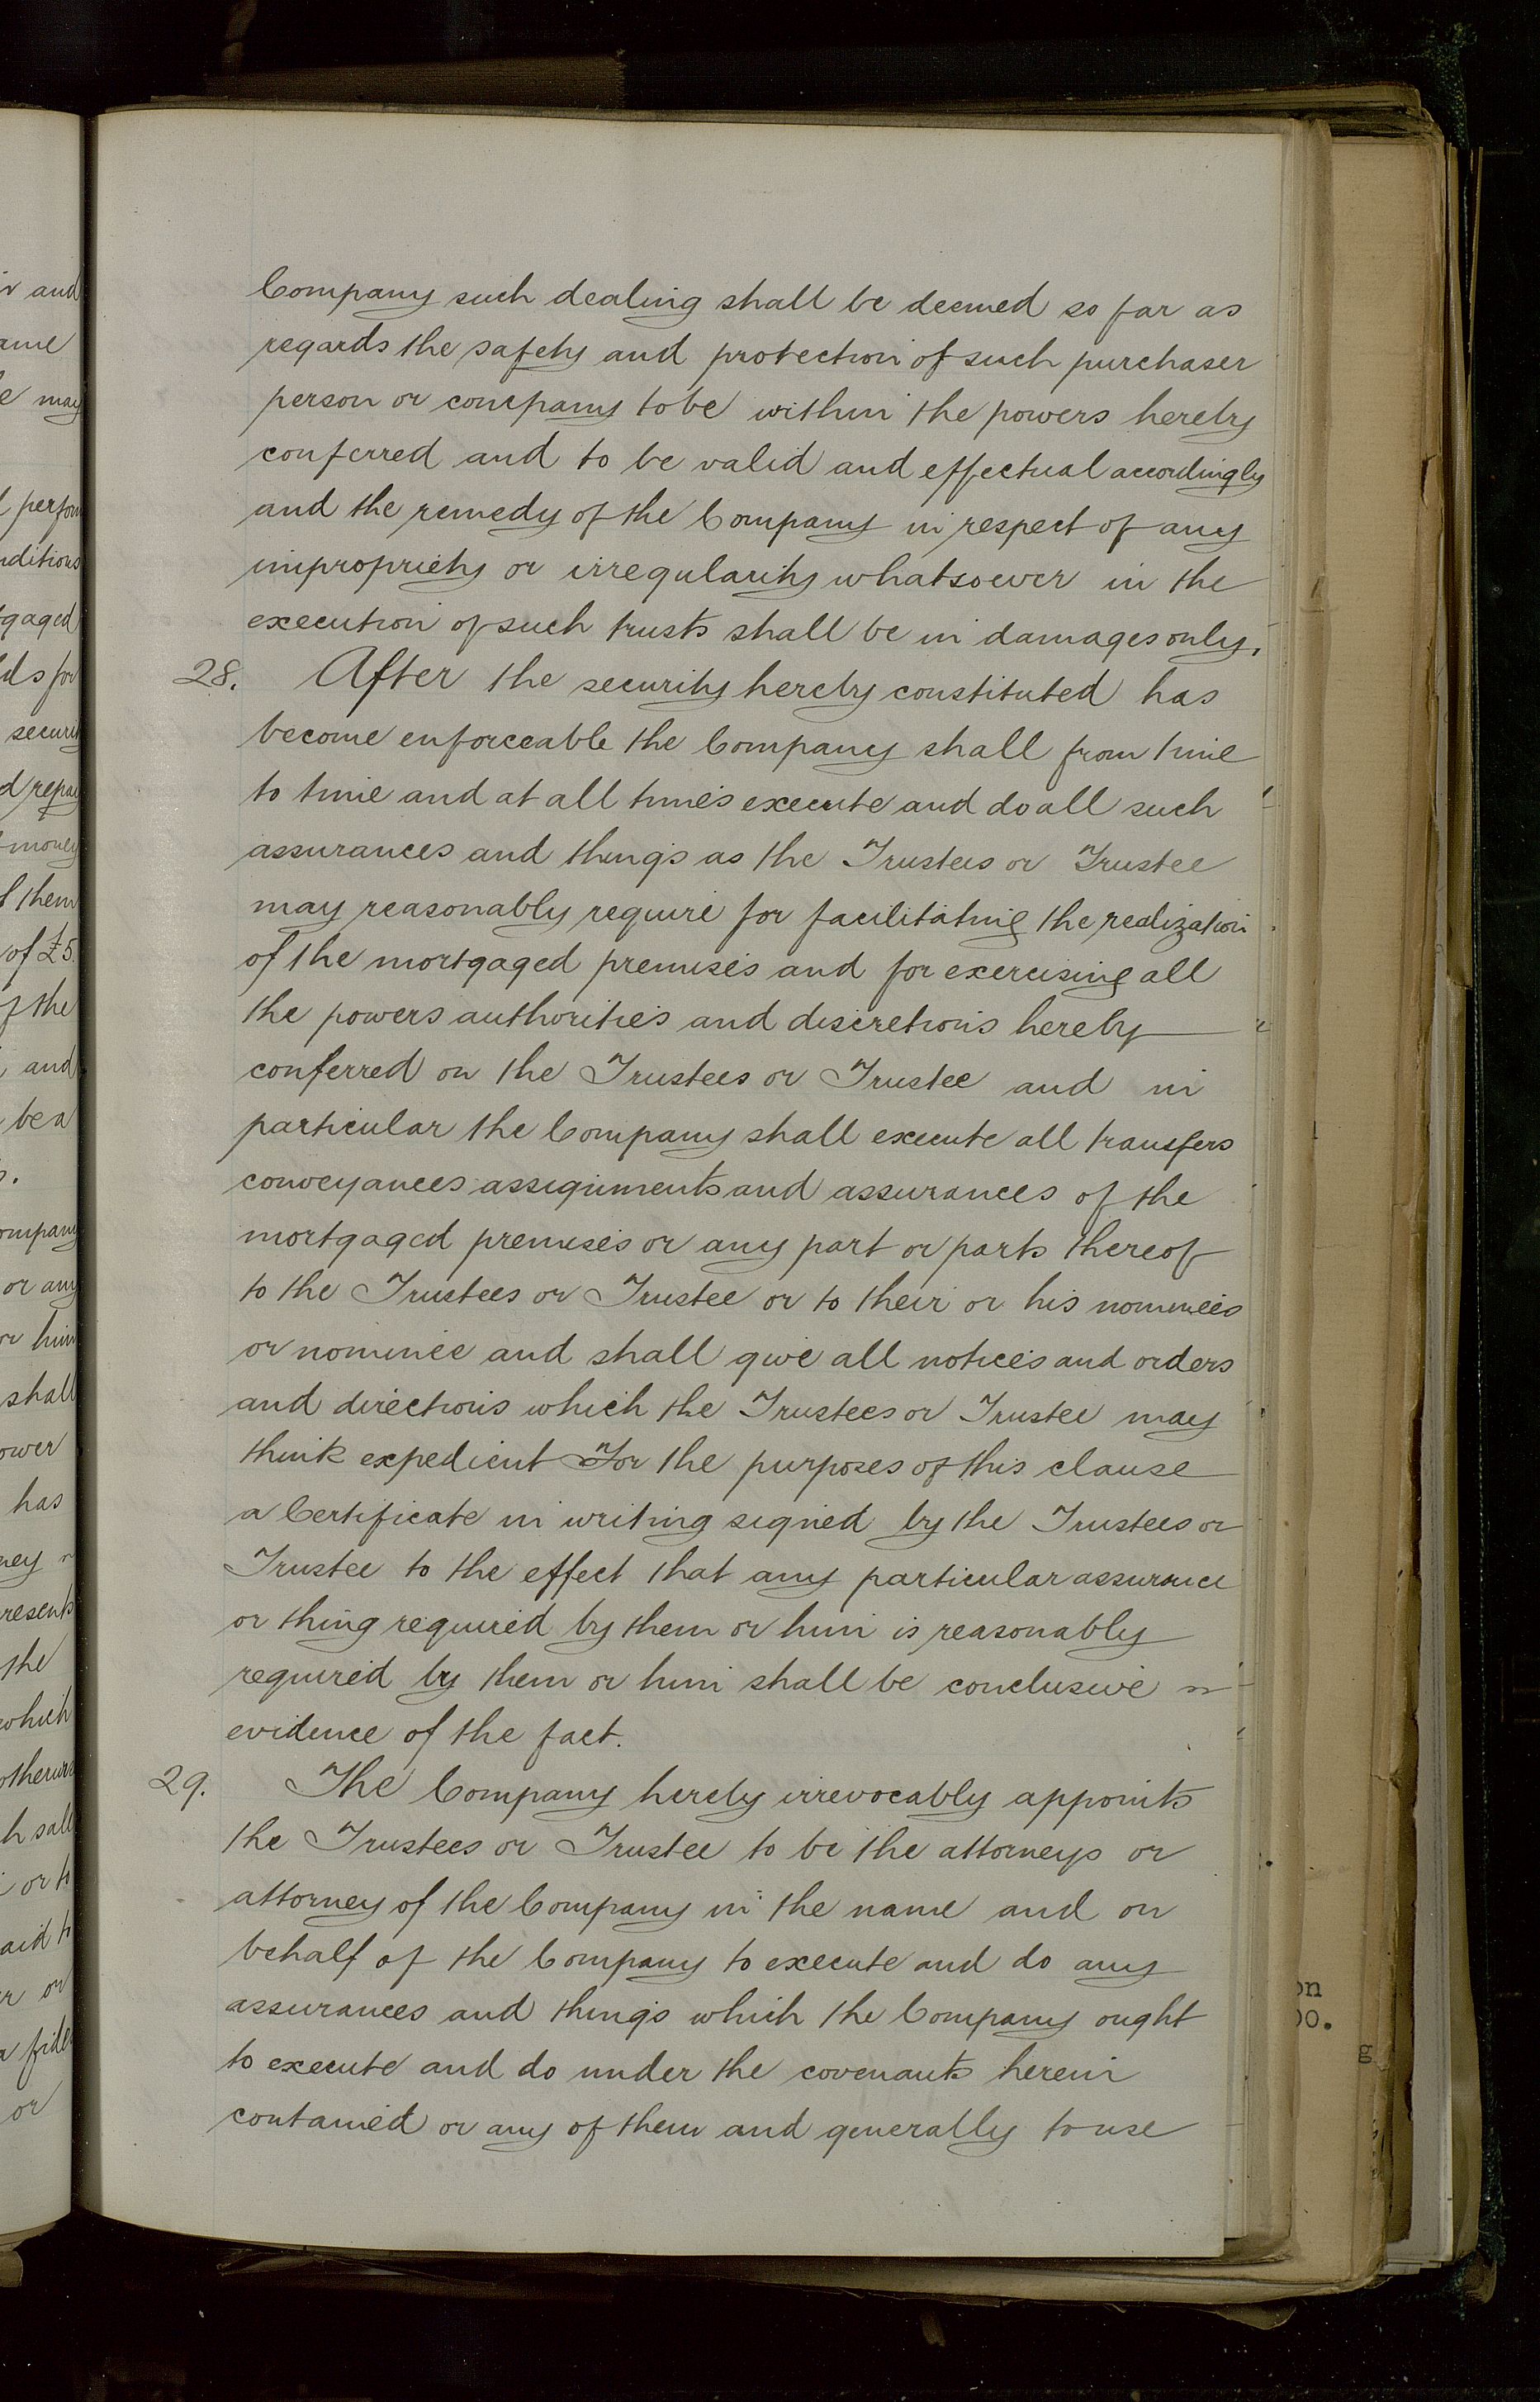 Company such dealing shall be deemed so far as
regards the safety and protection of such purchaser
person or company to be within the powers hereby
conferred and to be valid and effectual accordingly
and the remedy of the Company in respect of any
impropriety or irregularity whatsoever in the
execution of such trusts shall be in damages only.
28. After the security hereby constituted has
become enforceable the Company shall from time
to time and at all times execute and do all such
assurances and things as the Trustees or Trustee
may reasonably require for facilitating the realization
of the mortgaged premises and for exercising all
the powers authorities and discretions hereby
conferred on the Trustees or Trustee and in
particular the Company shall execute all transfers
conveyances assignments and assurances of the
mortgaged premises or any part or parts thereof
to the Trustees or Trustee or to their or his nominees
or nominee and shall give all notices and orders
and directions which the Trustees or Trustee may
think expedient For the purposes of this clause
a Certificate in writing signed by the Trustees or
Trustee to the effect that any particular assurance
or thing required by them or him is reasonably
required by them or him shall be conclusive
evidence of the fact.
29. The Company hereby irrevocably appoints
the Trustees or Trustee to be the attorneys or
attorney of the Company in the name and on
behalf of the Company to execute and do any
assurances and things which the Company ought
to execute and do under the covenants herein
contained or any of them and generally to use